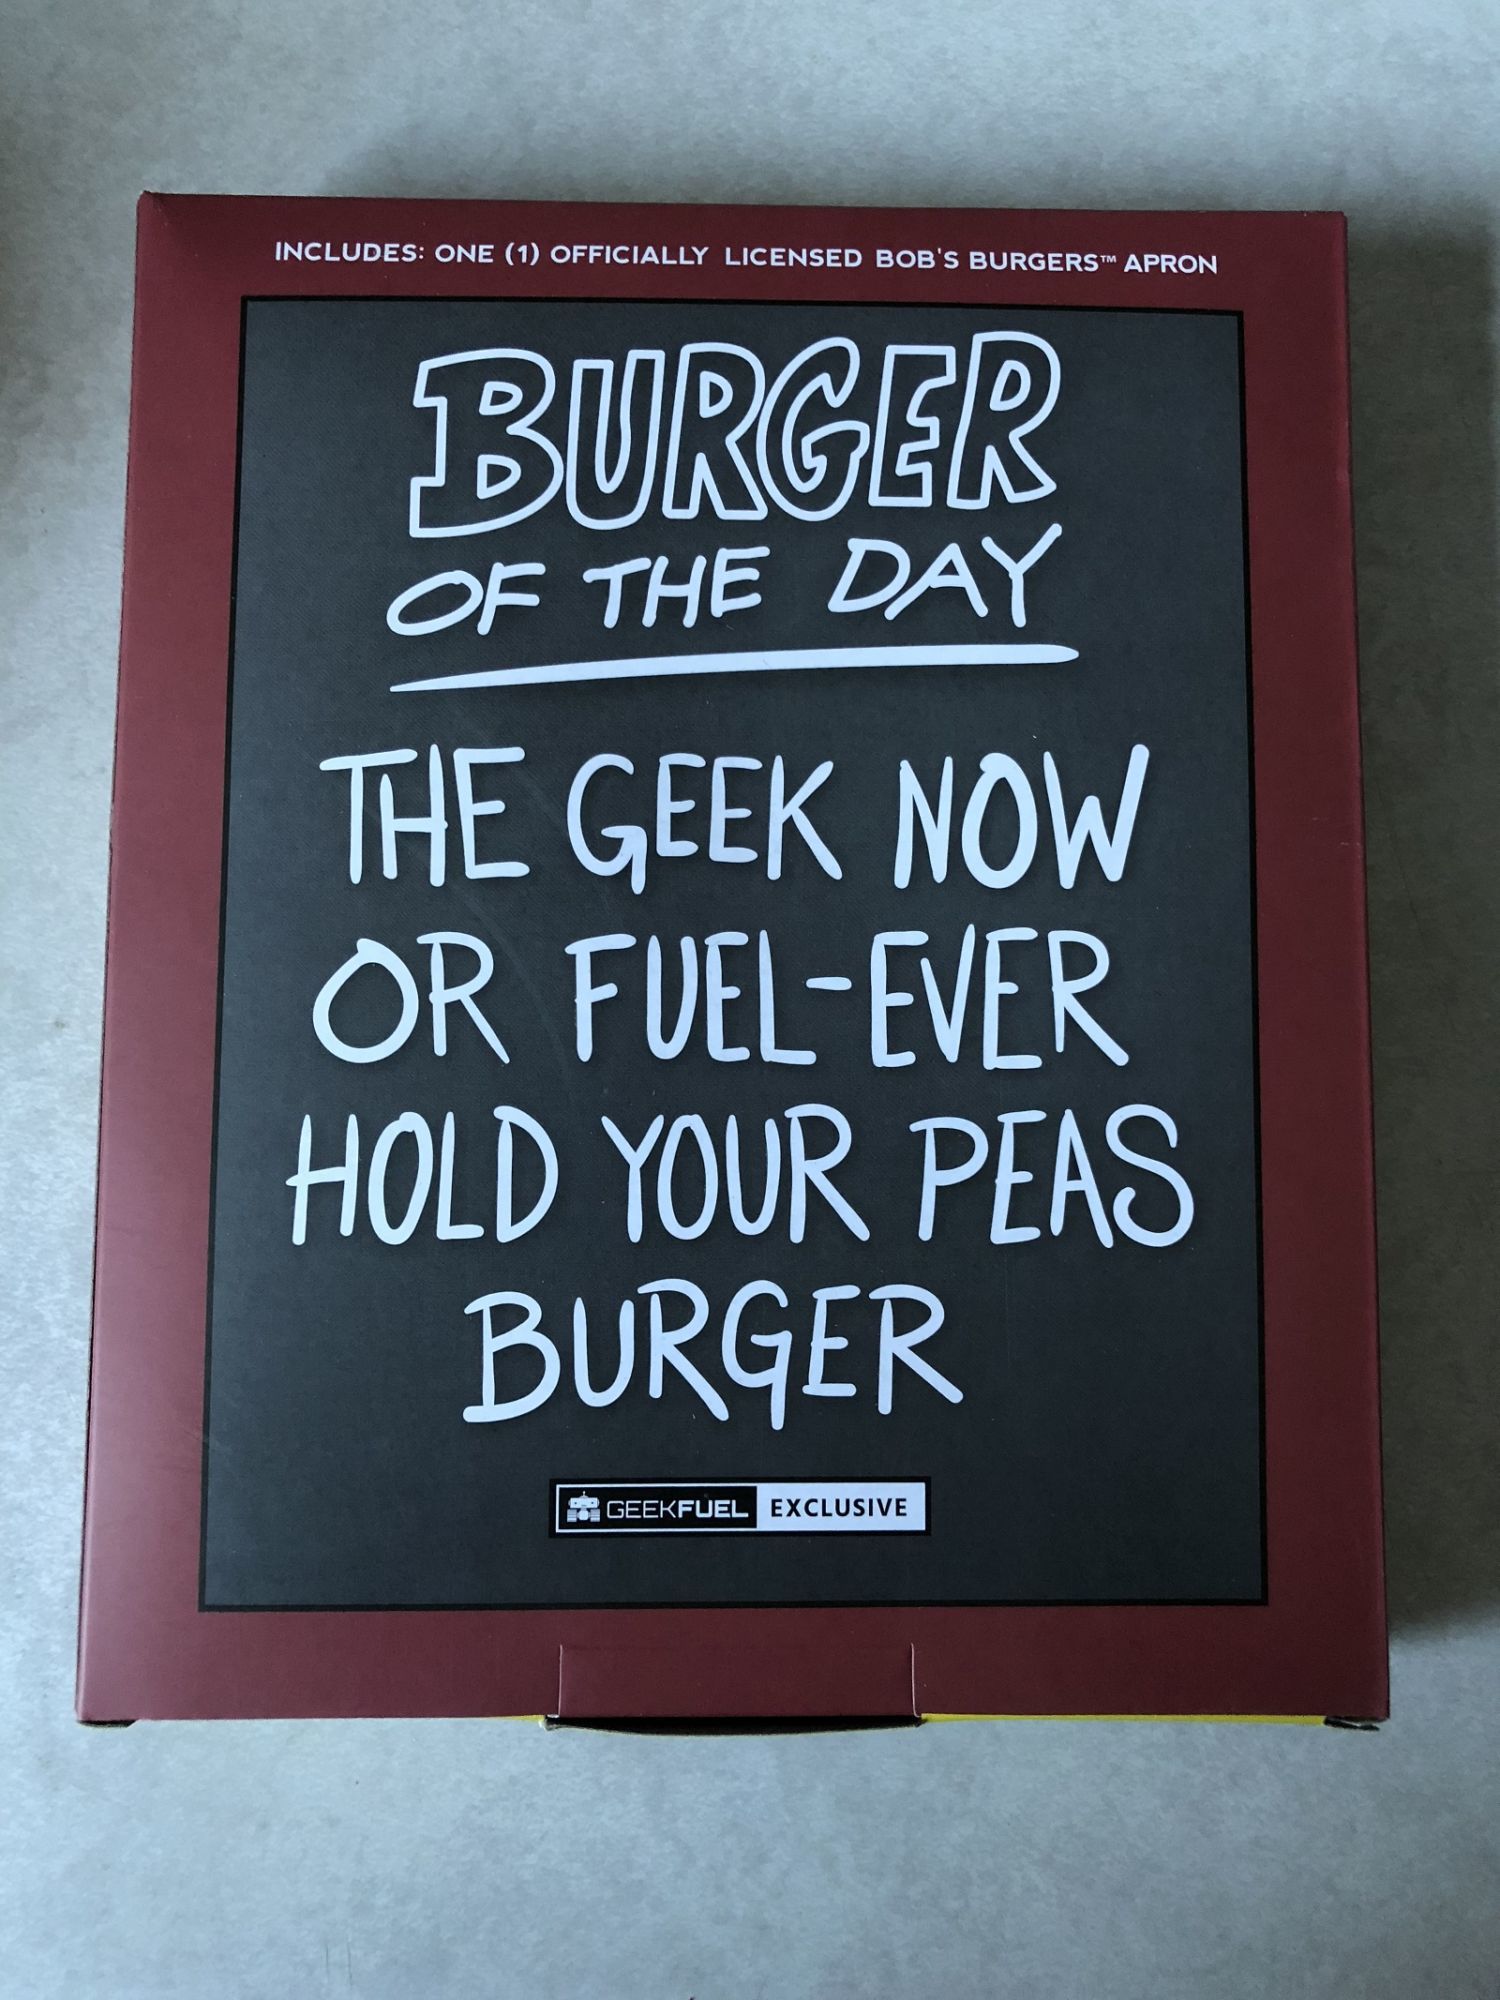 INCLUDES: ONE (1) OFFICIALLY LICENSED BOB'S BURGERS™ APRON
BURGER
OF THE DAY
THE GEEK NOW
OR FUEL-EVER
HOLD YOUR PEAS
BURGER
GEEKFUEL EXCLUSIVE